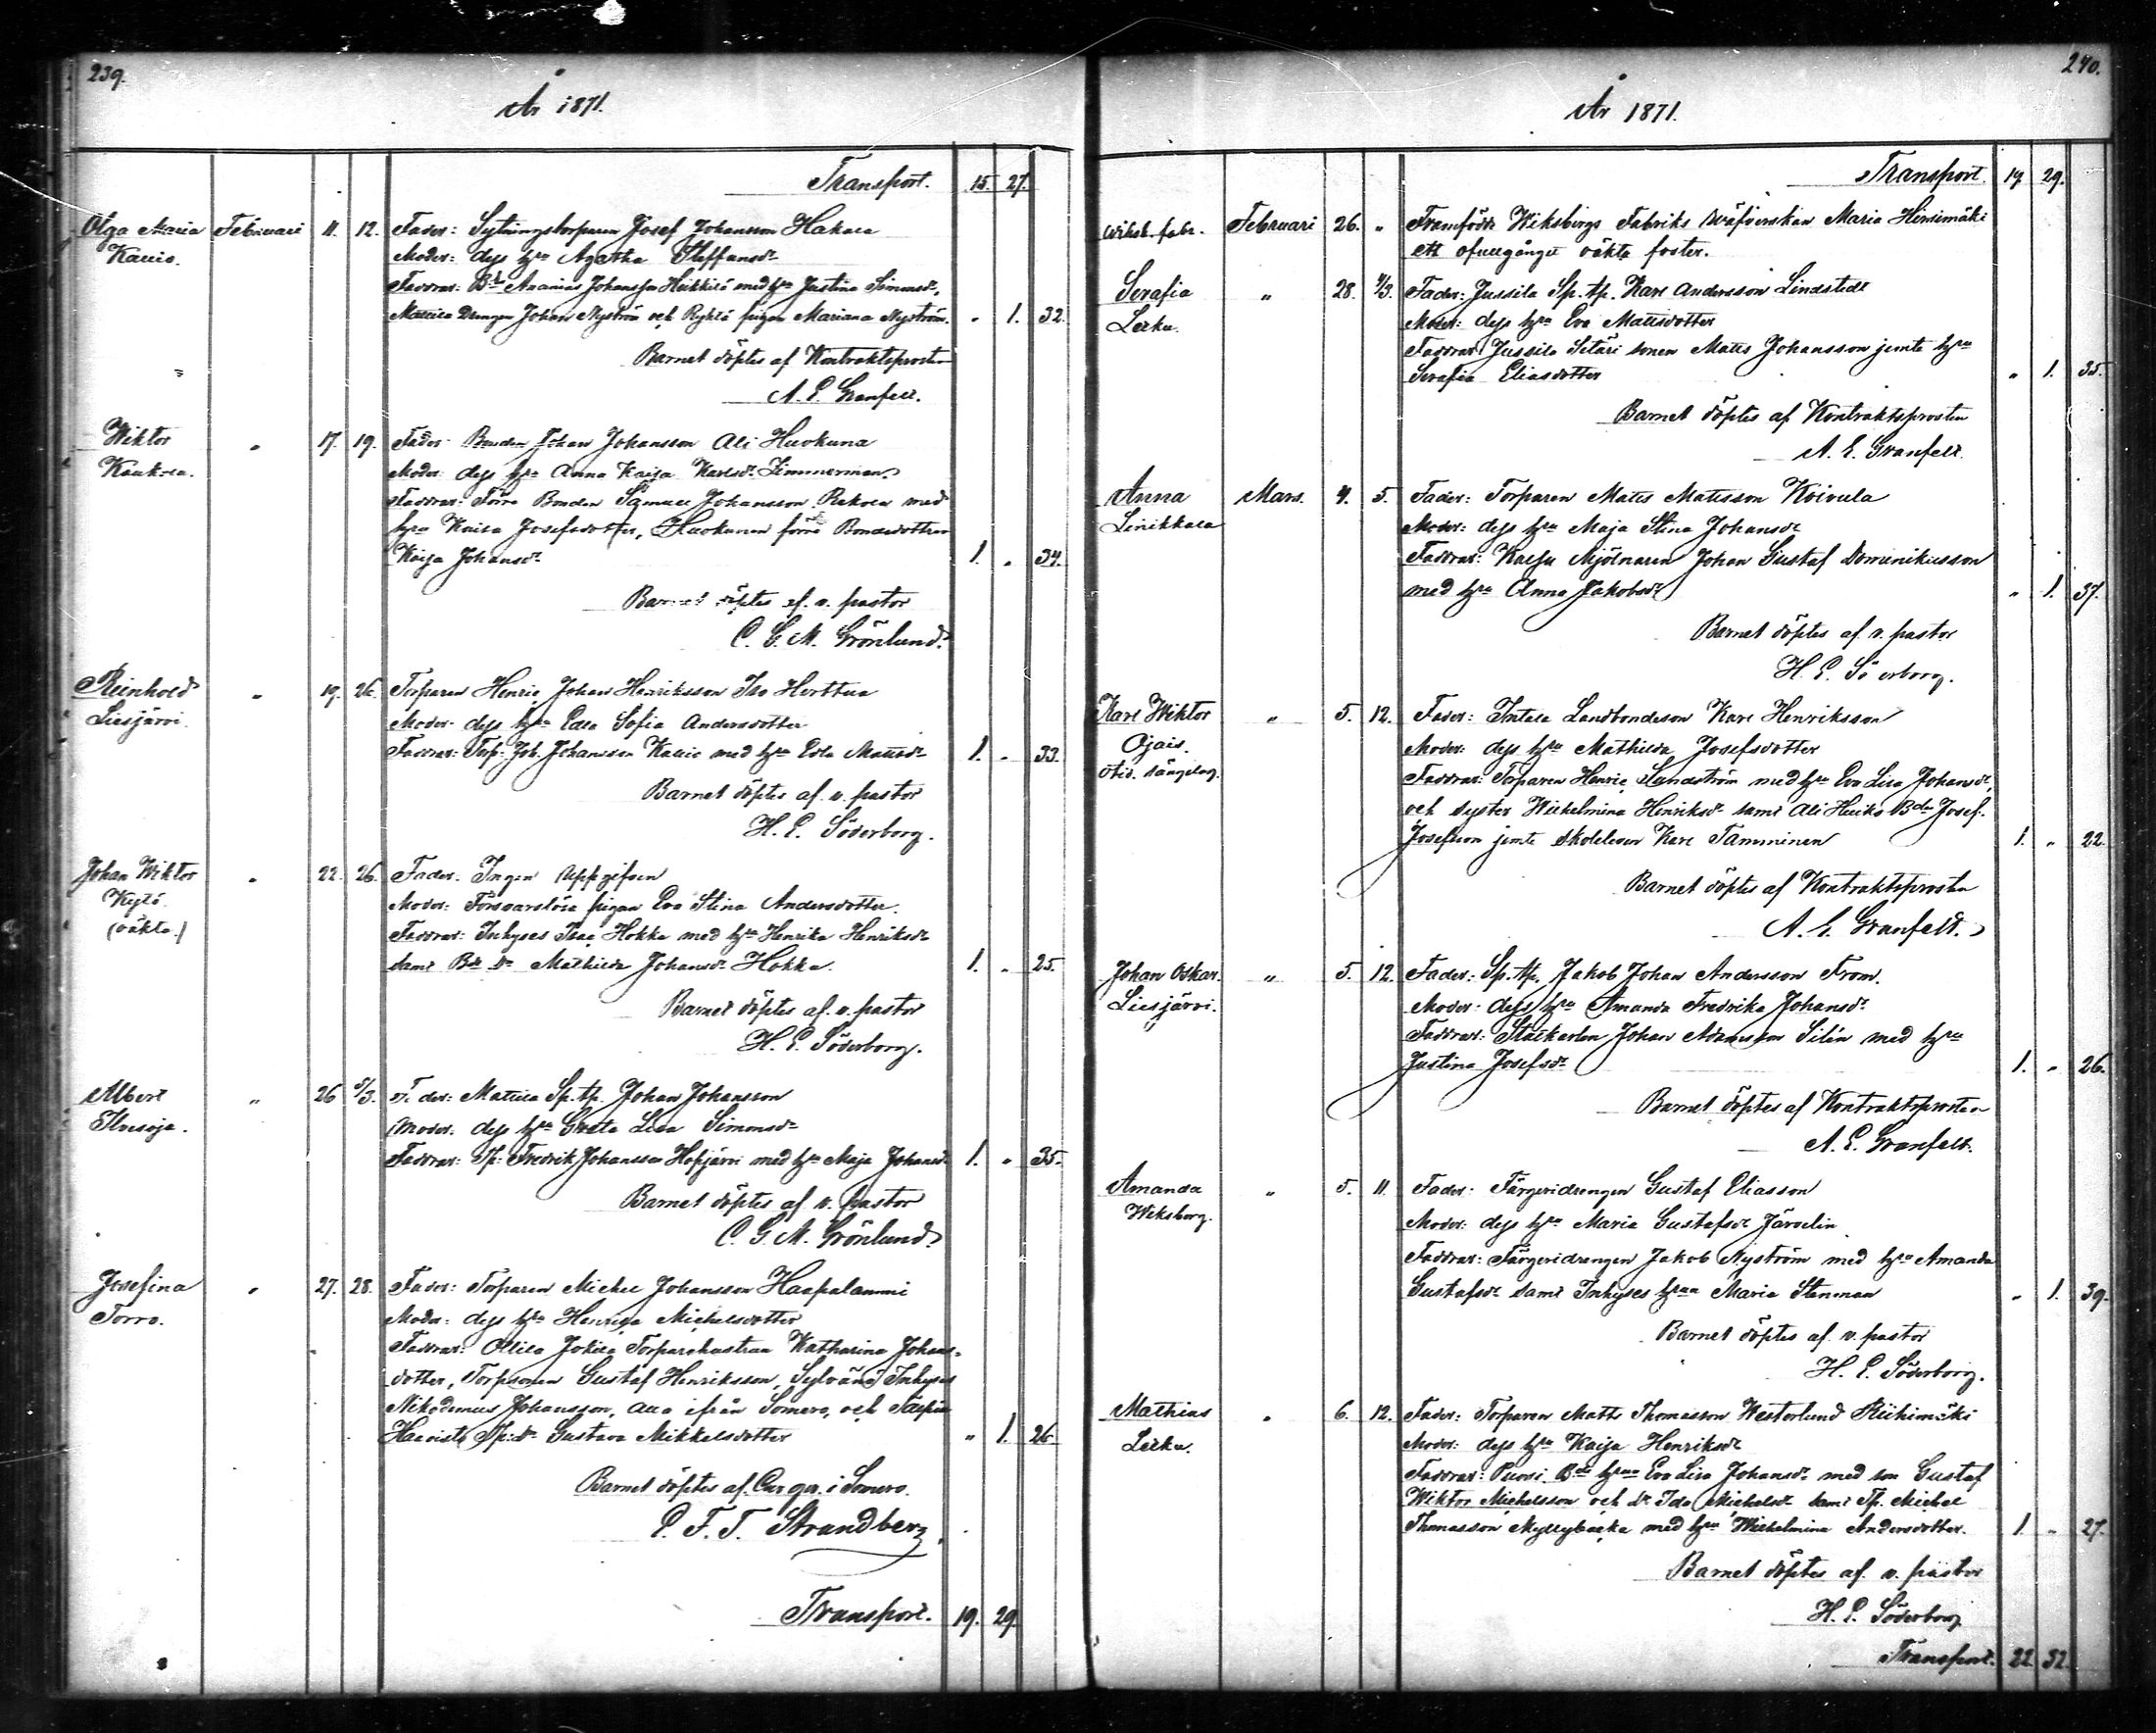 239.
År 1871.
Transport. 15. 27.
Olga Maria Februari 11. 12. Fader: Sytningstorparen Josef Johansson Hakala
Kauis. Moder: dess hu Agatha Steffansdr
Faddrar: Bd Ananias Johansson Heikkilä med hu Justina Simonsdr,
Mattila Drengen Johan Nyström och Ryhtä pigan Mariana Nyström. " 1. 32.
Barnet döptes af Kontraktsprosten
A. E. Granfelt.
Wiktor " 17. 19. Fader: Bonden Johan Johansson Ali Huokuna
Kaukola. Moder: dess hu Anna Kaisa Karlsdr Zimmerman
Faddrar: Förra Bonden Samuel Johansson Rekola med
hu Kaisa Josefsdotter, Huokunan förra Bondedottren
Kaisa Johansdr 1. " 34.
Barnet döptes af v. pastor
C. G. M. Grönlund.
Reinhold " 19. 26. Torparen Henric Johan Henriksson Iso Herttua
Liesjärvi. Moder: dess hu Edla Sofia Andersdotter
Faddrar: Torp. Joh. Johansson Kallio med hu Edla Mattsdr 1. " 33.
Barnet döptes af v. pastor
H. E. Söderborg.
Johan Wiktor " 22. 26. Fader: Ingen uppgifven
Kytö. Moder: Försvarslösa pigan Eva Stina Andersdotter.
(oäkta.) Faddrar: Inhyses Isac Hokka med hu Henrika Henriksdr
samt Bde Dr Mathilda Johansdr Hokka. 1. " 25.
Barnet döptes af v. pastor
H. E. Söderborg.
Albert " 26 5/3. F der: Mattila Sp. tp. Johan Johansson
Moder: dess hu Greta Lisa Simonsdr
Faddrar: Tp: Fredrik Johansson Hopjärvi med hu Maja Johansdr 1. " 35.
Barnet döptes af v. pastor
C. G. M. Grönlund.
Josefina " 27. 28. Fader: Torparen Michel Johansson Haapalammi
Torro. Moder: dess hu Henrica Michelsdotter
Faddrar: Ollila Jokila Torparehustrun Katharina Johans-
dotter, Torpsonen Gustaf Henriksson, Sylvänä Inhyses
Nikodemus Johansson, alla ifrån Somero, och
Haavisto Tp: dr Gustava Mikkelsdotter " 1. 26.
Barnet döptes af Cur ger. i Somero.
P. F. T. Strandberg.
Transport. 19. 29.
240.
År 1871.
Transport. 19 29.
Wiksb. fabr. Februari 26. " Framfödde Wiksbergs Fabriks wäfverskan Maria Hirsimäki
ett ofullgånget oäkta foster.
Serafia " 28. 4/3. Fader: Jussila Sp. tp. Karl Andersson Lindstedt
Letku. Moder: dess hu Eva Mattsdotter
Faddrar: Jussila Setäri sonen Matts Johansson jemte hu
Serafia Eliasdotter " 1. 35.
Barnet döptes af Kontraktsprosten
A. E. Granfelt.
Anna Mars. 4. 5. Fader: Torparen Matts Mattsson Koivula
Liinikkala Moder: dess hu Maja Stina Johansdr
Faddrar: Mjölnaren Johan Gustaf Dominikusson
med hu Anna Jakobsdr " 1. 37.
Barnet döptes af v. pastor
H. E. Sö erborg.
Karl Wiktor " 5. 12. Fader: Intala Landbondeson Karl Henriksson
Ojais. Moder: dess hu Mathilda Josefsdotter
Faddrar: Torparen Henric Sandström med hu Eva Lisa Johansdr,
och syster Wilhelmina Henriksdr samt Ali Huiko Bdn Josef
Josefsson jemte skoleleven Karl Tamminen 1. " 22.
Barnet döptes af Kontraktsprosten
A. E. Granfelt.
Johan Oskar. " 5. 12. Fader: Sp. tp. Jakob Johan Andersson From.
Liesjärvi. Moder: dess hu Amanda Fredrika Johansdr
Faddrar: Johan Adamsson Silén med hu
Justina Josefsdr 1. " 26.
Barnet döptes af Kontraktsprosten
A. E. Granfelt.
Amanda " 5. 11. Fader: Färgeridrengen Gustaf Eliasson
Wiksberg. Moder: dess hu Maria Gustafsdr Järvelin
Faddrar: Färgeridrengen Jakob Nyström med hu Amanda
Gustafsdr samt Inhyses hrun Maria Stenman " 1. 39.
Barnet döptes af v. pastor
H. E. Söderborg.
Mathias " 6. 12. Fader: Torparen Matts Thomasson Westerlund Riihimäki
Letku. Moder: dess hu Kaisa Henriksdr
Faddrar: Puosi Bde hrun Eva Lisa Johansdr med son Gustaf
Wiktor Michelsson och dr Ida Michelsdr samt Tp. Michel
Thomasson Myllybacka med hu Wilhelmina Andersdotter. 1. " 27.
Barnet döptes af v. pastor
H. E. Söderborg
Transport. 22 32